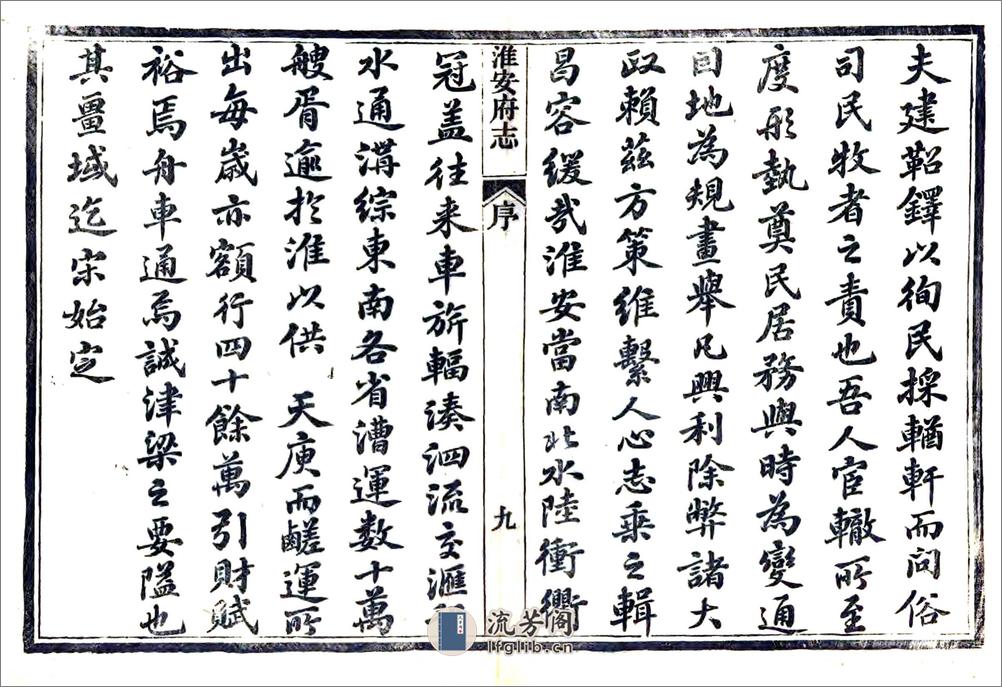 夫建鞀鐸以徇民採輶軒而问俗
司民牧者之責也吾人宦轍所至
度形埶奠民居務與時為變通
因地為規畫舉凡興利除弊諸大
政賴茲方策維繫人心志乘之輯
曷容缓哉淮安當南北水陸衝衢
淮安府志
序
九
冠盖往来車旂輻湊泗流交滙
水通溝綜東南各省漕運数十萬
艘胥逾扵淮以供 天庾而鹺運所
出每歲亦額行四十餘萬引財賦
裕焉舟車通焉誠津梁之要隘也
其畺域迄宋始定
流芳阁
lfglib.cn